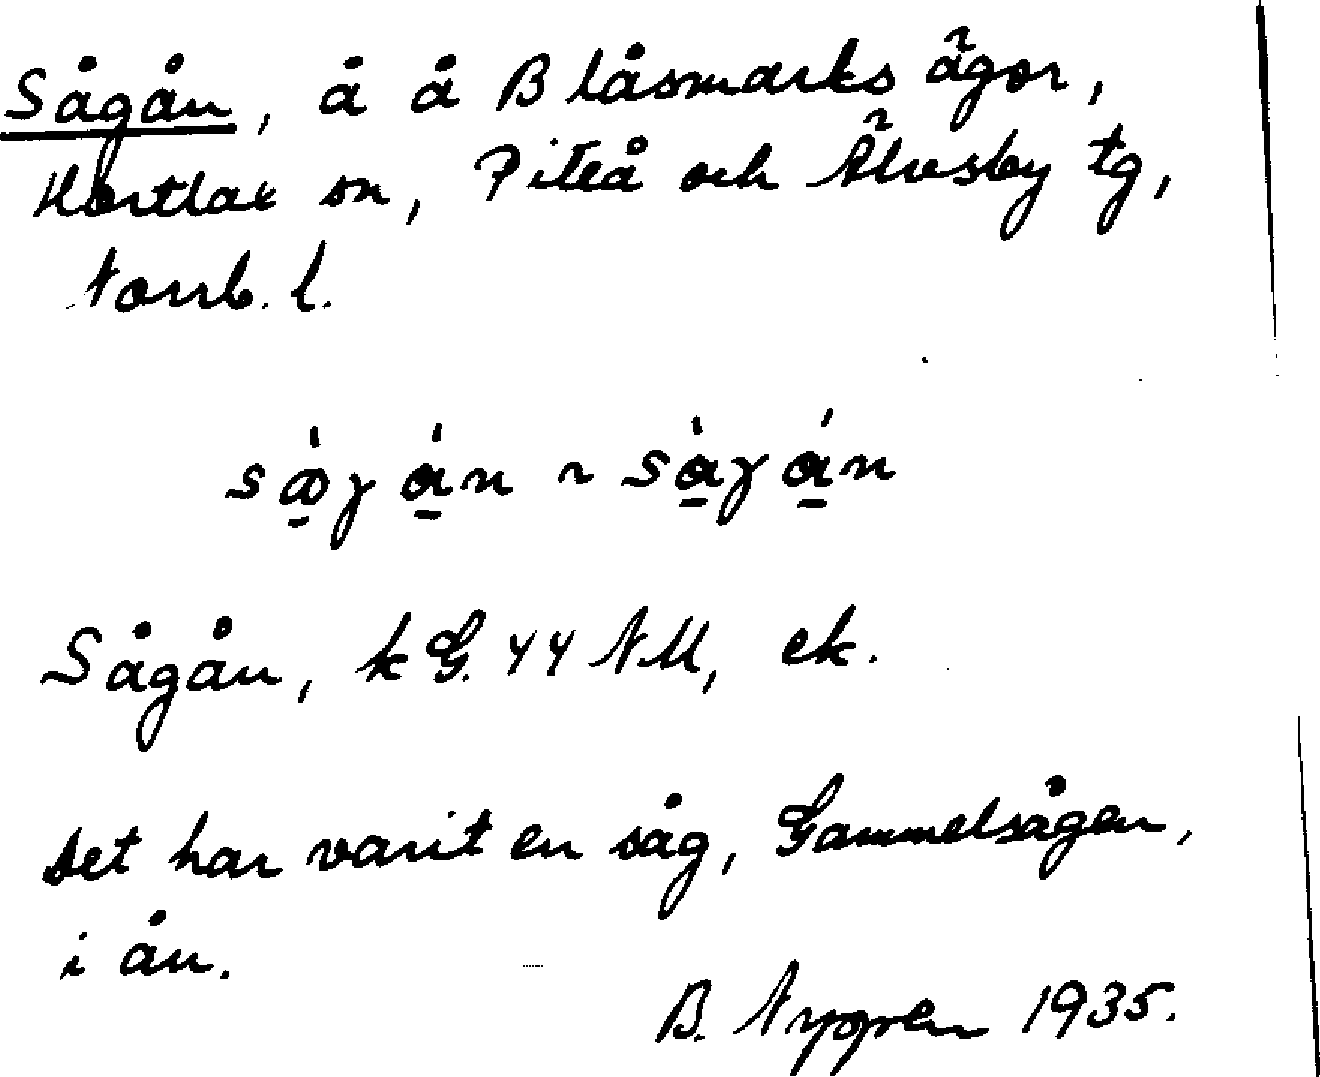 Sågån, å å Blåsmarks ägor,
Hortlax sn, Piteå och Älvsby tg,
Norrb. l.
Sågån, kG. 44 NM, ek.
Det har varit en såg, Gammelsågen,
i ån.
B. Nygren 1935.